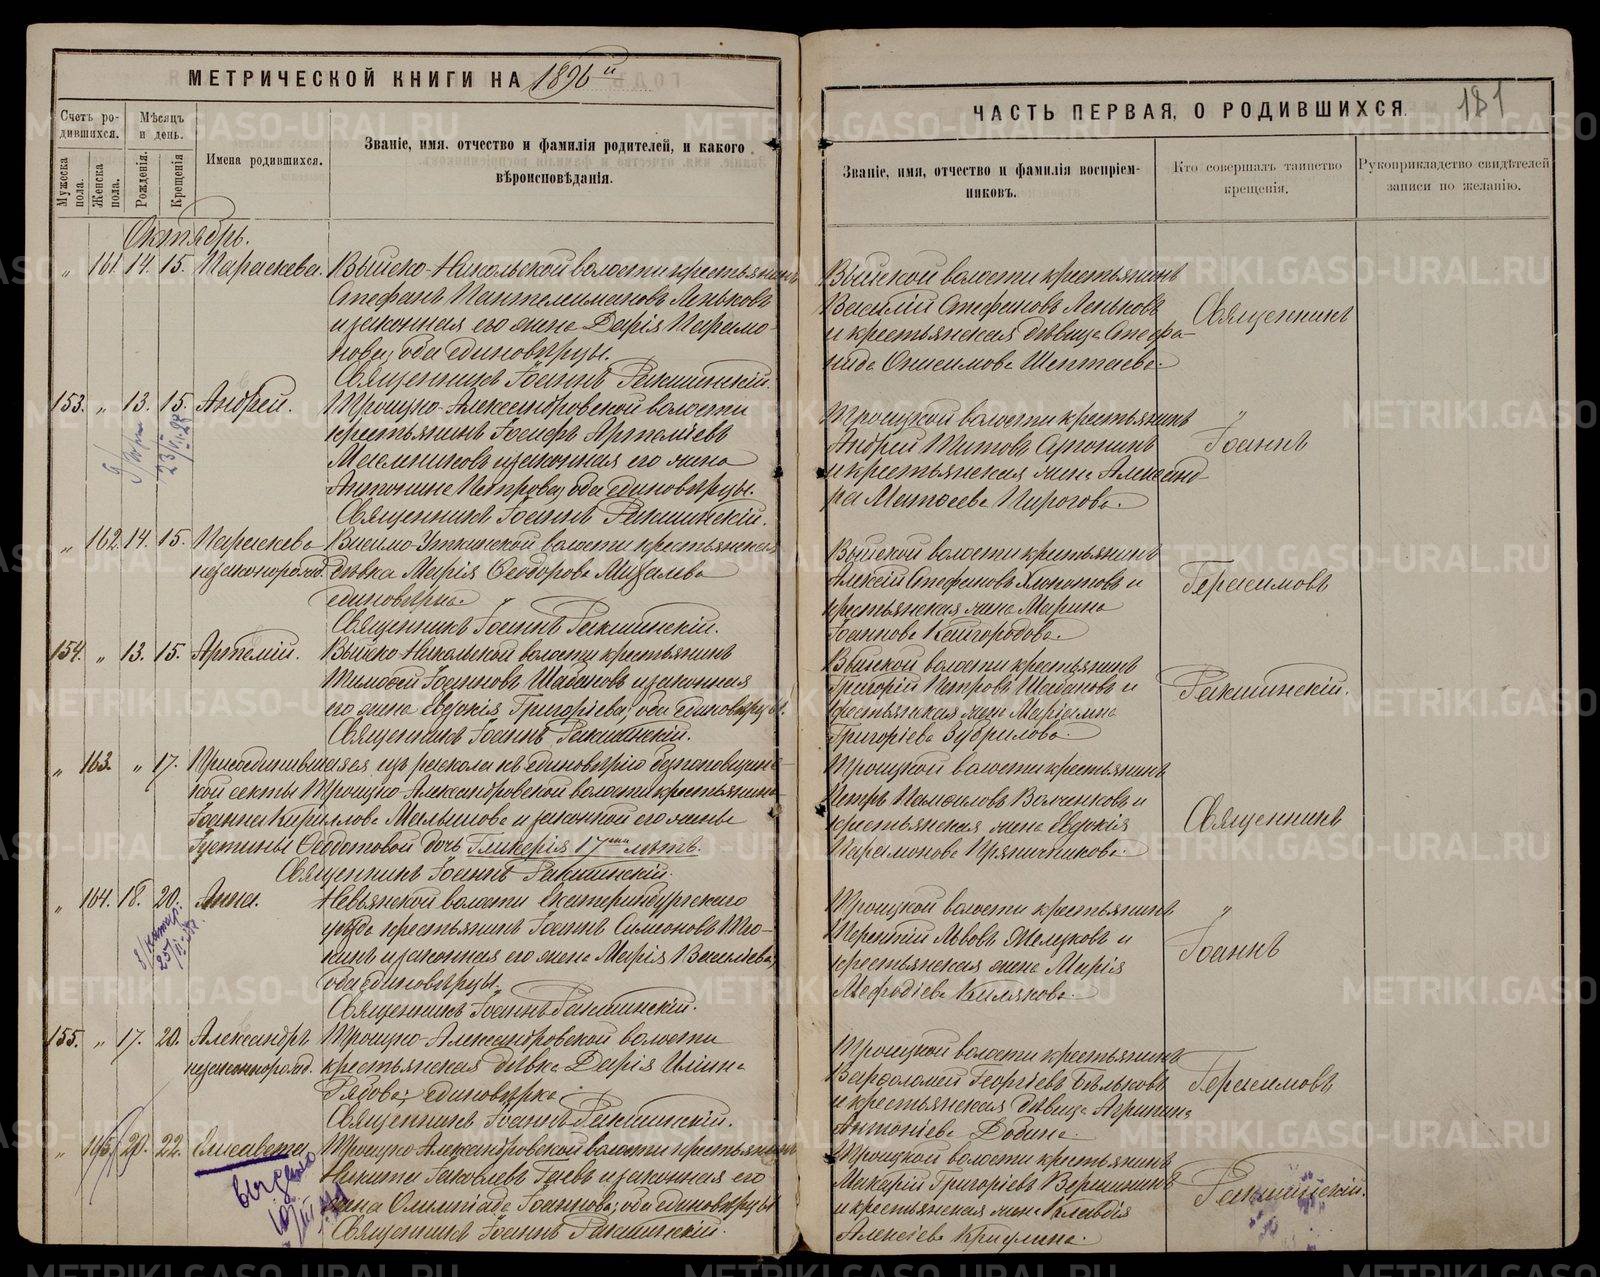 МЕТРИЧЕСКОЙ КНИГИ НА 1896й
Счетъ родившихся.
Мѣсяцъ и день.
Имена родившихся.
Званіе, имя, отчество и фамилія родителей, и какого
вѣроисповѣданія.
Мужеска пола.
Женска пола.
Рожденія.
Крещенія
Октябрь.
„ 161. 14. 15. Параскева. Выйско-Никольской волости крестьянинъ
Стефанъ Пантелеимоновъ Леньковъ
и законная его жена Дарія Парамо-
нова, оба единовѣрцы.
Священникъ Іоаннъ Ракшинскій.
153. „ 13. 15. Андрей. Троицко-Александровской волости
крестьянинъ Іосифъ Артеміевъ
Масленниковъ и законная его жена
Антонина Петрова, оба единовѣрцы.
Священникъ Іоаннъ Ракшинскій.
„ 162. 14. 15. Параскева Висимо-Уткинской волости крестьянская
незаконорожд. дѣвка Марія Ѳеодорова
единовѣрка.
Священникъ Іоаннъ Ракшинскій.
154. „ 13. 15. Артемій. Выйско-Никольской волости крестьянинъ
Тимоѳей Іоанновъ Шабановъ и законная
его жена Евдокія Григоріева, оба единовѣрцы.
Священникъ Іоаннъ Ракшинскій.
„ 163. „ 17. Присоединившаяся изъ раскола къ единовѣрію безпоповщинс-
кой секты Троицко-Александровской волости крестьянина
Іоанна Кириллова Малышова и законной его жены
Іустины Ѳедотовой дочь Гликерія 17ти лѣтъ.
Священникъ Іоаннъ Ракшинскій.
„ 164. 18. 20. Анна. Невьянской волости Екатеринбургскаго
уѣзда крестьянинъ Іоаннъ Симеоновъ
и законная его жена Марія Васильева,
оба единовѣрцы.
Священникъ Іоаннъ Ракшинскій.
155. „ 17. 20. Александръ Троицко-Александровской волости
незаконнорожд. крестьянская дѣвка Дарія Ильина
Рядова, единовѣрка.
Священникъ Іоаннъ Ракшинскій.
„ 165. 20. 22. Елисавета. Троицко-Александровской волости крестьянинъ
Никита Іаковлевъ Гаевъ и законная его
жена Олимпіада Іоаннова, оба единовѣрцы
Священникъ Іоаннъ Ракшинскій.
ЧАСТЬ ПЕРВАЯ, О РОДИВШИХСЯ.
181
Званіе, имя, отчество и фамилія воспріем-
никовъ.
Кто совершалъ таинство
крещенія.
Рукоприкладство свидѣтелей
записи по желанію.
Выйской волости крестьянинъ
Василій Стефановъ Леньковъ
и крестьянская дѣвица Стефа-
нида Онисимова Шептаева.
Священникъ
Троицкой волости крестьянинъ
Андрей Титовъ
и крестьянская жена Александ-
ра Матѳеева Пирогова.
„
Іоаннъ
Выйской волости крестьянинъ
Алексій Стефановъ и
крестьянская жена Марина
Іоаннова Кайгородова.
Герасимовъ
Выйской волости крестьянинъ
Григорій Петровъ Шабановъ и
крестьянская жена Маріамна
Григоріева Зубрилова.
Ракшинскій.
Троицкой волости крестьянинъ
Петръ Памфиловъ Волченковъ и
крестьянская жена Евдокія
Парамонова Пряничникова.
Священникъ
Троицкой волости крестьянинъ
Терентій Львовъ и
крестьянская жена Марія
Меѳодіева Килякова.
„
Іоаннъ
Троицкой волости крестьянинъ
Варѳоломей Георгіевъ Бѣльковъ
и крестьянская дѣвица Агрипина
Антоніева
Герасимовъ
Троицкой волости крестьянинъ
Макарій Григоріевъ Вершининъ
и крестьянская жена Клавдія
Алексіева
Ракшинскій.